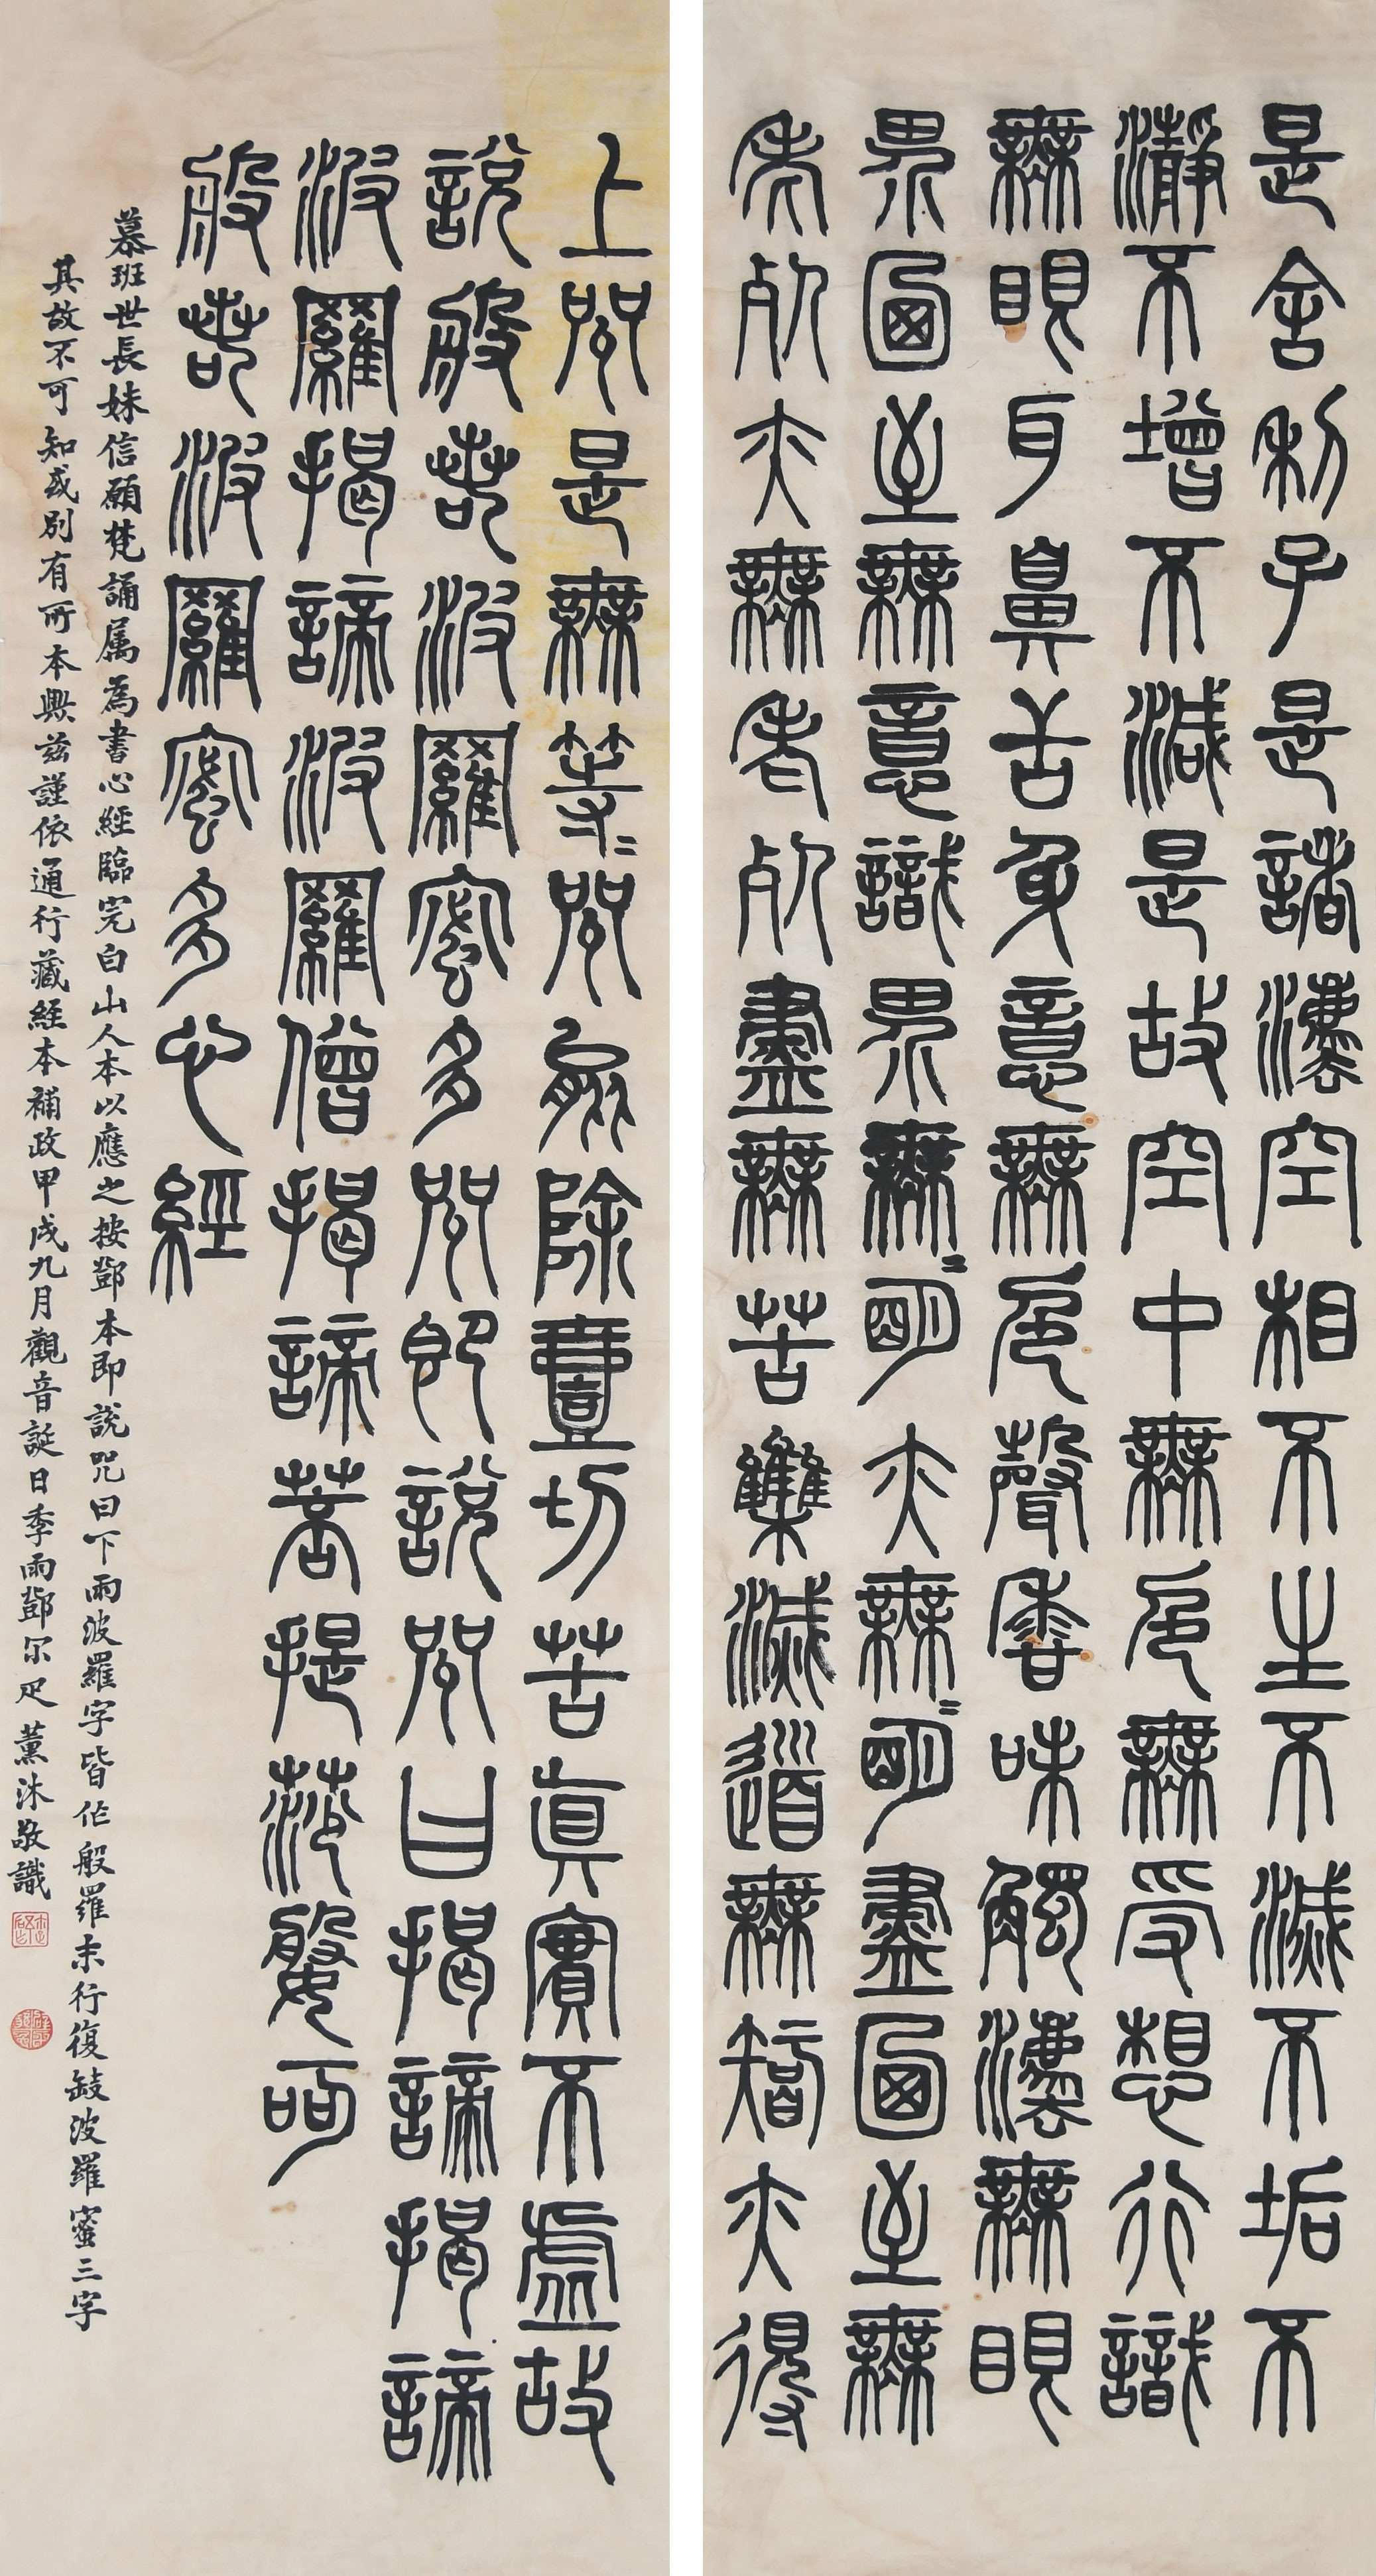 是舍利子是諸灋空相不生不滅不垢不
瀞不增不減是故空中無色無受想行識
無眼耳鼻舌身意無色聲香味觸灋無眼
界乃至無意識界無=明亦無=明盡乃至無
老死亦無老死盡無苦雧滅道無智亦得
上咒是無等=咒能除壹切苦真實不虛故
說般若波羅蜜多咒即說咒曰揭諦揭諦
波羅揭諦波羅僧揭諦菩提莎婆呵
般若波羅蜜多心經
慕班世長妹信願梵誦属為書心經臨完白山人本以應之按鄧本即說咒曰下兩波羅字皆作般羅末行復缺波羅蜜三字
其故不可知或別有所本歟茲謹依通行藏經本補政甲戌九月觀音誕日季雨鄧尔疋薰沐敬識